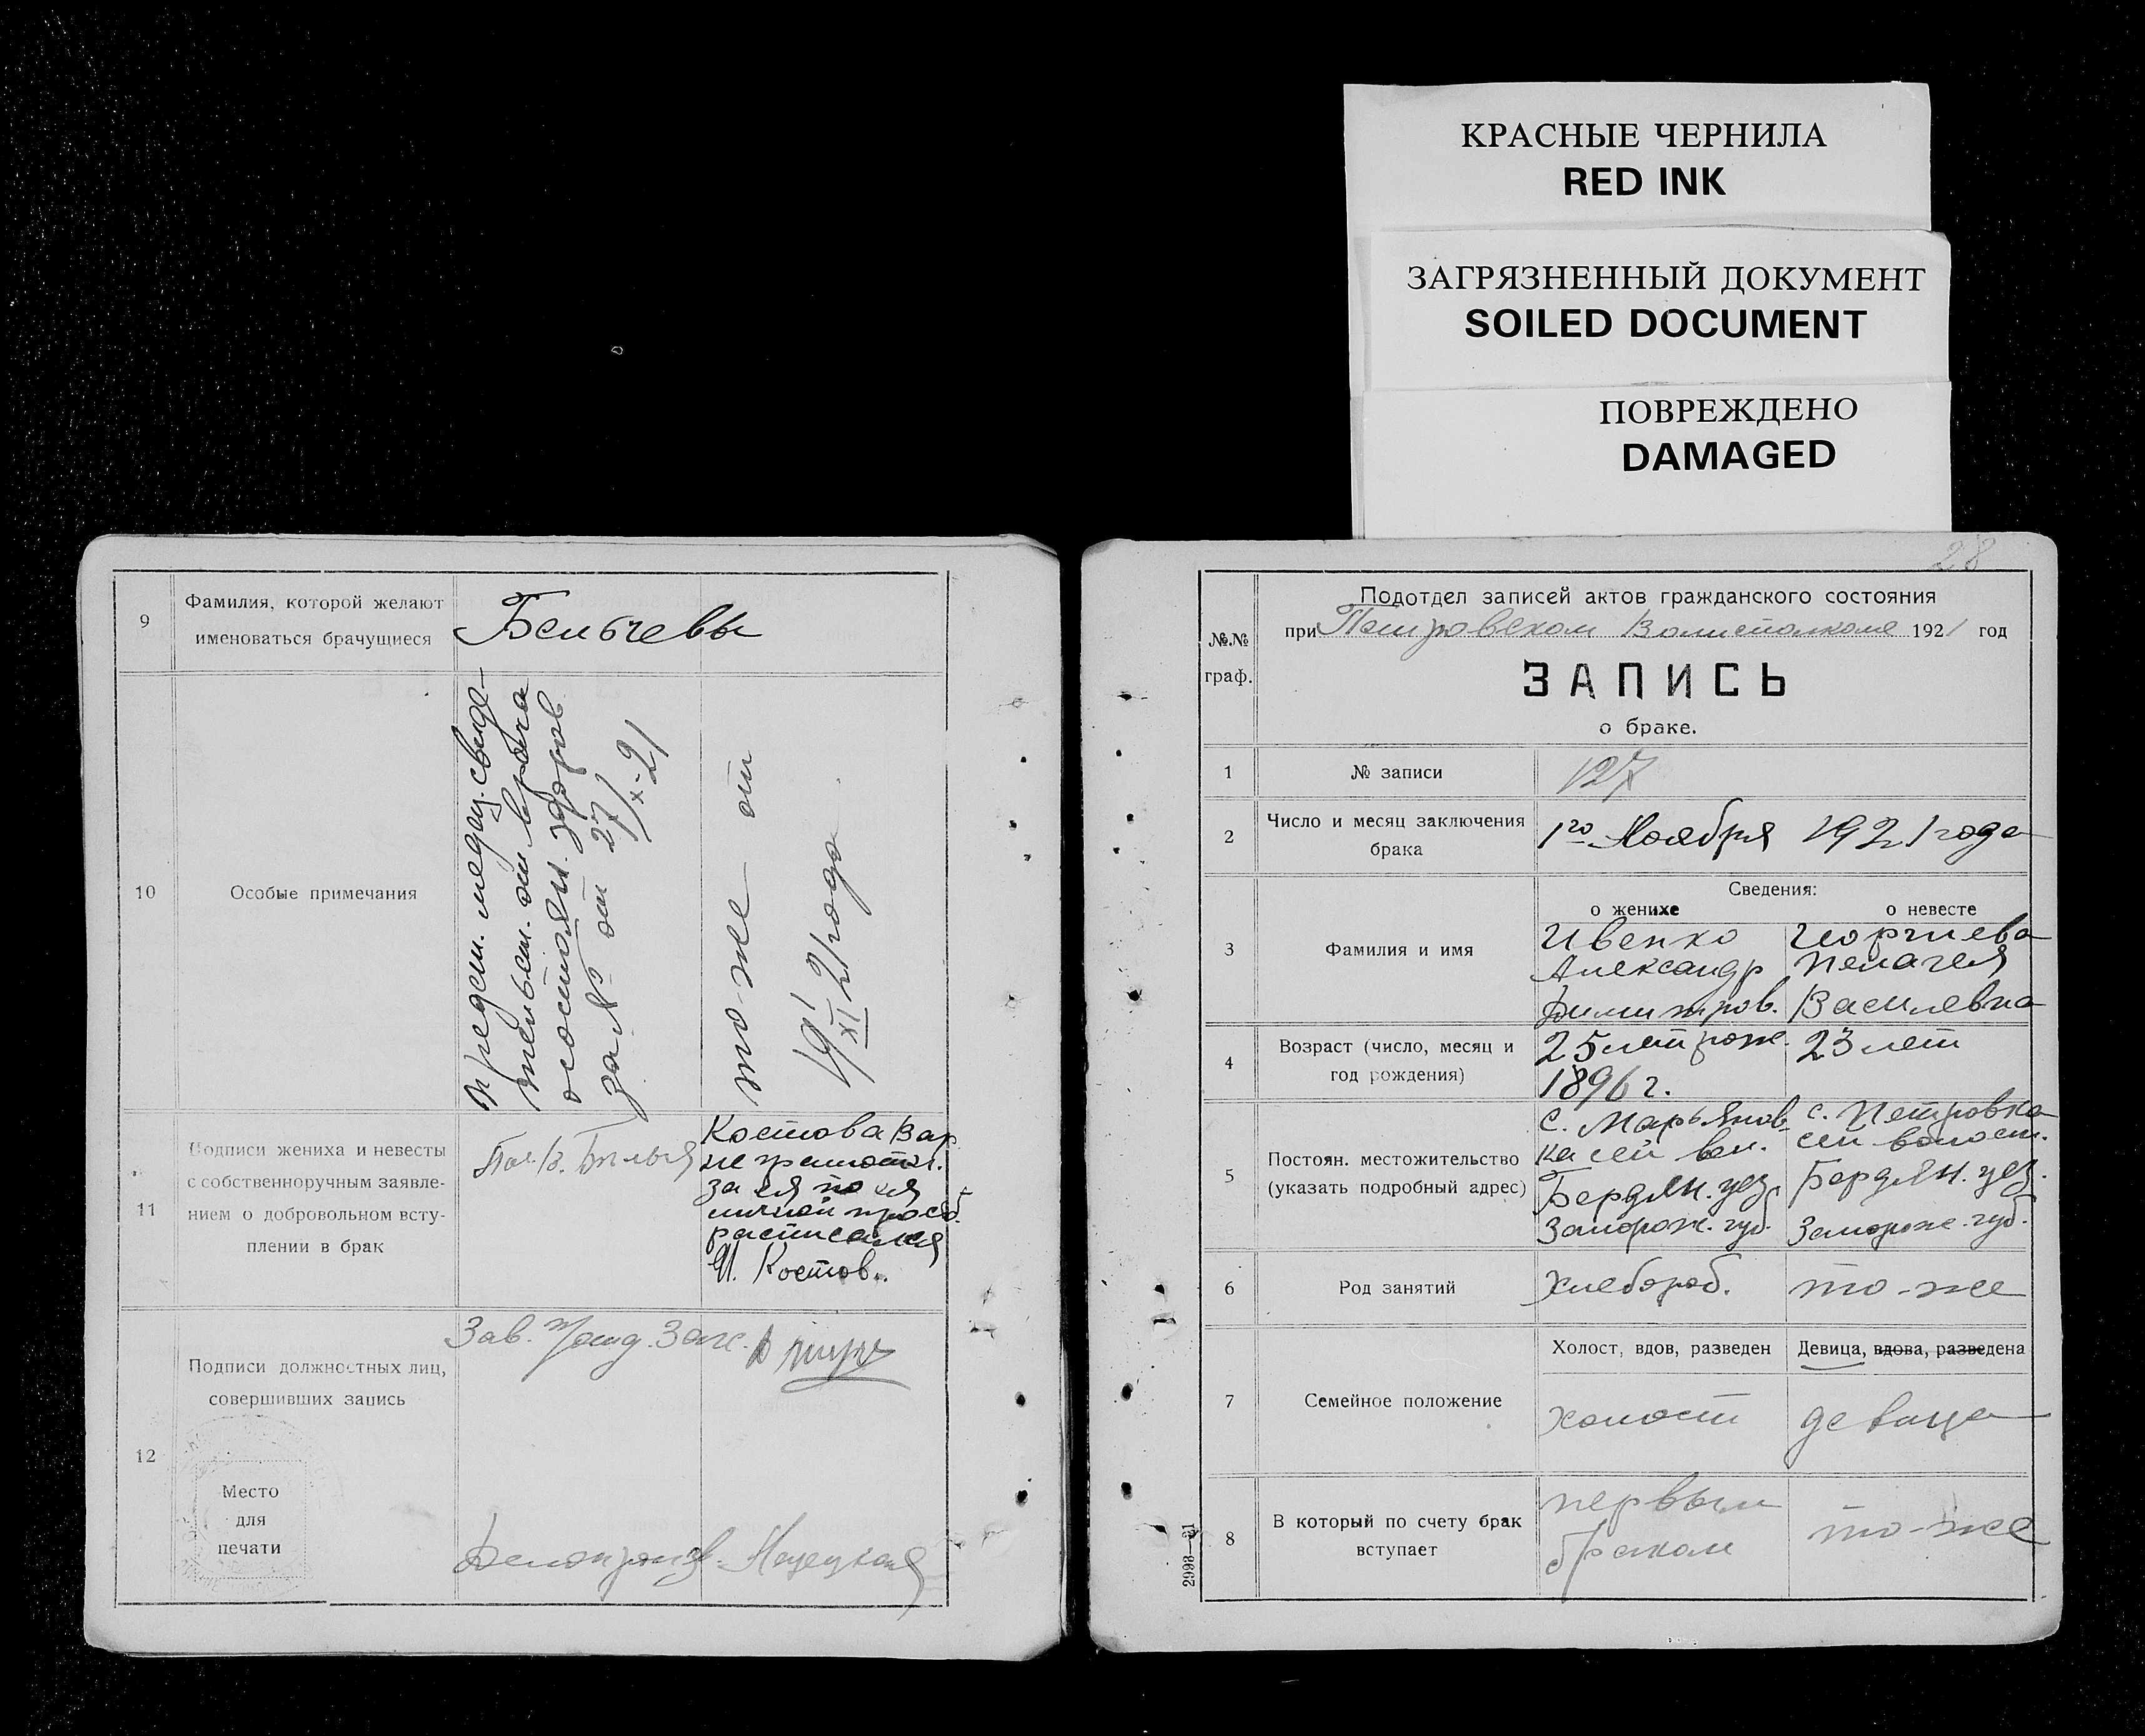 КРАСНЫЕ ЧЕРНИЛА
RED INK
ЗАГРЯЗНЕННЫЙ ДОКУМЕНТ
SOILED DOCUMENT
ПОВРЕЖДЕНО
DAMAGED
9
Фамилия, которой желают
именоваться брачущиеся
Бельчевы
10
Особые примечания
предст. медиц. свиде-
тельст. от врача
о состоян. здоров
за № от 27/X-21
то-же от
1/XI 21 года
11
Подписи жениха и невесты
с собственноручным заявле-
нием о добровольном всту-
плении в брак
Костова Вар.
не грамотн.
за ея по ея
личной просб.
расписался
И. Костов.
12
Подписи должностных лиц,
совершивших запись
Зав. Загс.
Место
для
печати
Делопроизв.
28
№№
граф.
Подотдел записей актов гражданского состояния
при Петровском Волисполкоме 1921 год
ЗАПИСЬ
о браке.
1
№ записи
127
2
Число и месяц заключения
брака
1го Ноября 1921 года
Сведения:
о женихе
о невесте
3
Фамилия и имя
Ивенко
Александр
Димитров.
Георгиева
Пелагея
Василевна
4
Возраст (число, месяц и
год рождения)
25 лет рож.
1896 г.
23 лет
5
Постоян. местожительство
(указать подробный адрес)
с. Марьянов-
ка сей вол.
Бердян. уез.
Запорож. губ.
с. Петровка
сей волост.
Бердян. уез.
Запорож. губ.
6
Род занятий
Хлебороб.
то-же
7
Семейное положение
Холост, вдов, разведен
Девица, вдова, разведена
холост
девица
8
В который по счету брак
вступает
первым
браком
то-же
2993—21